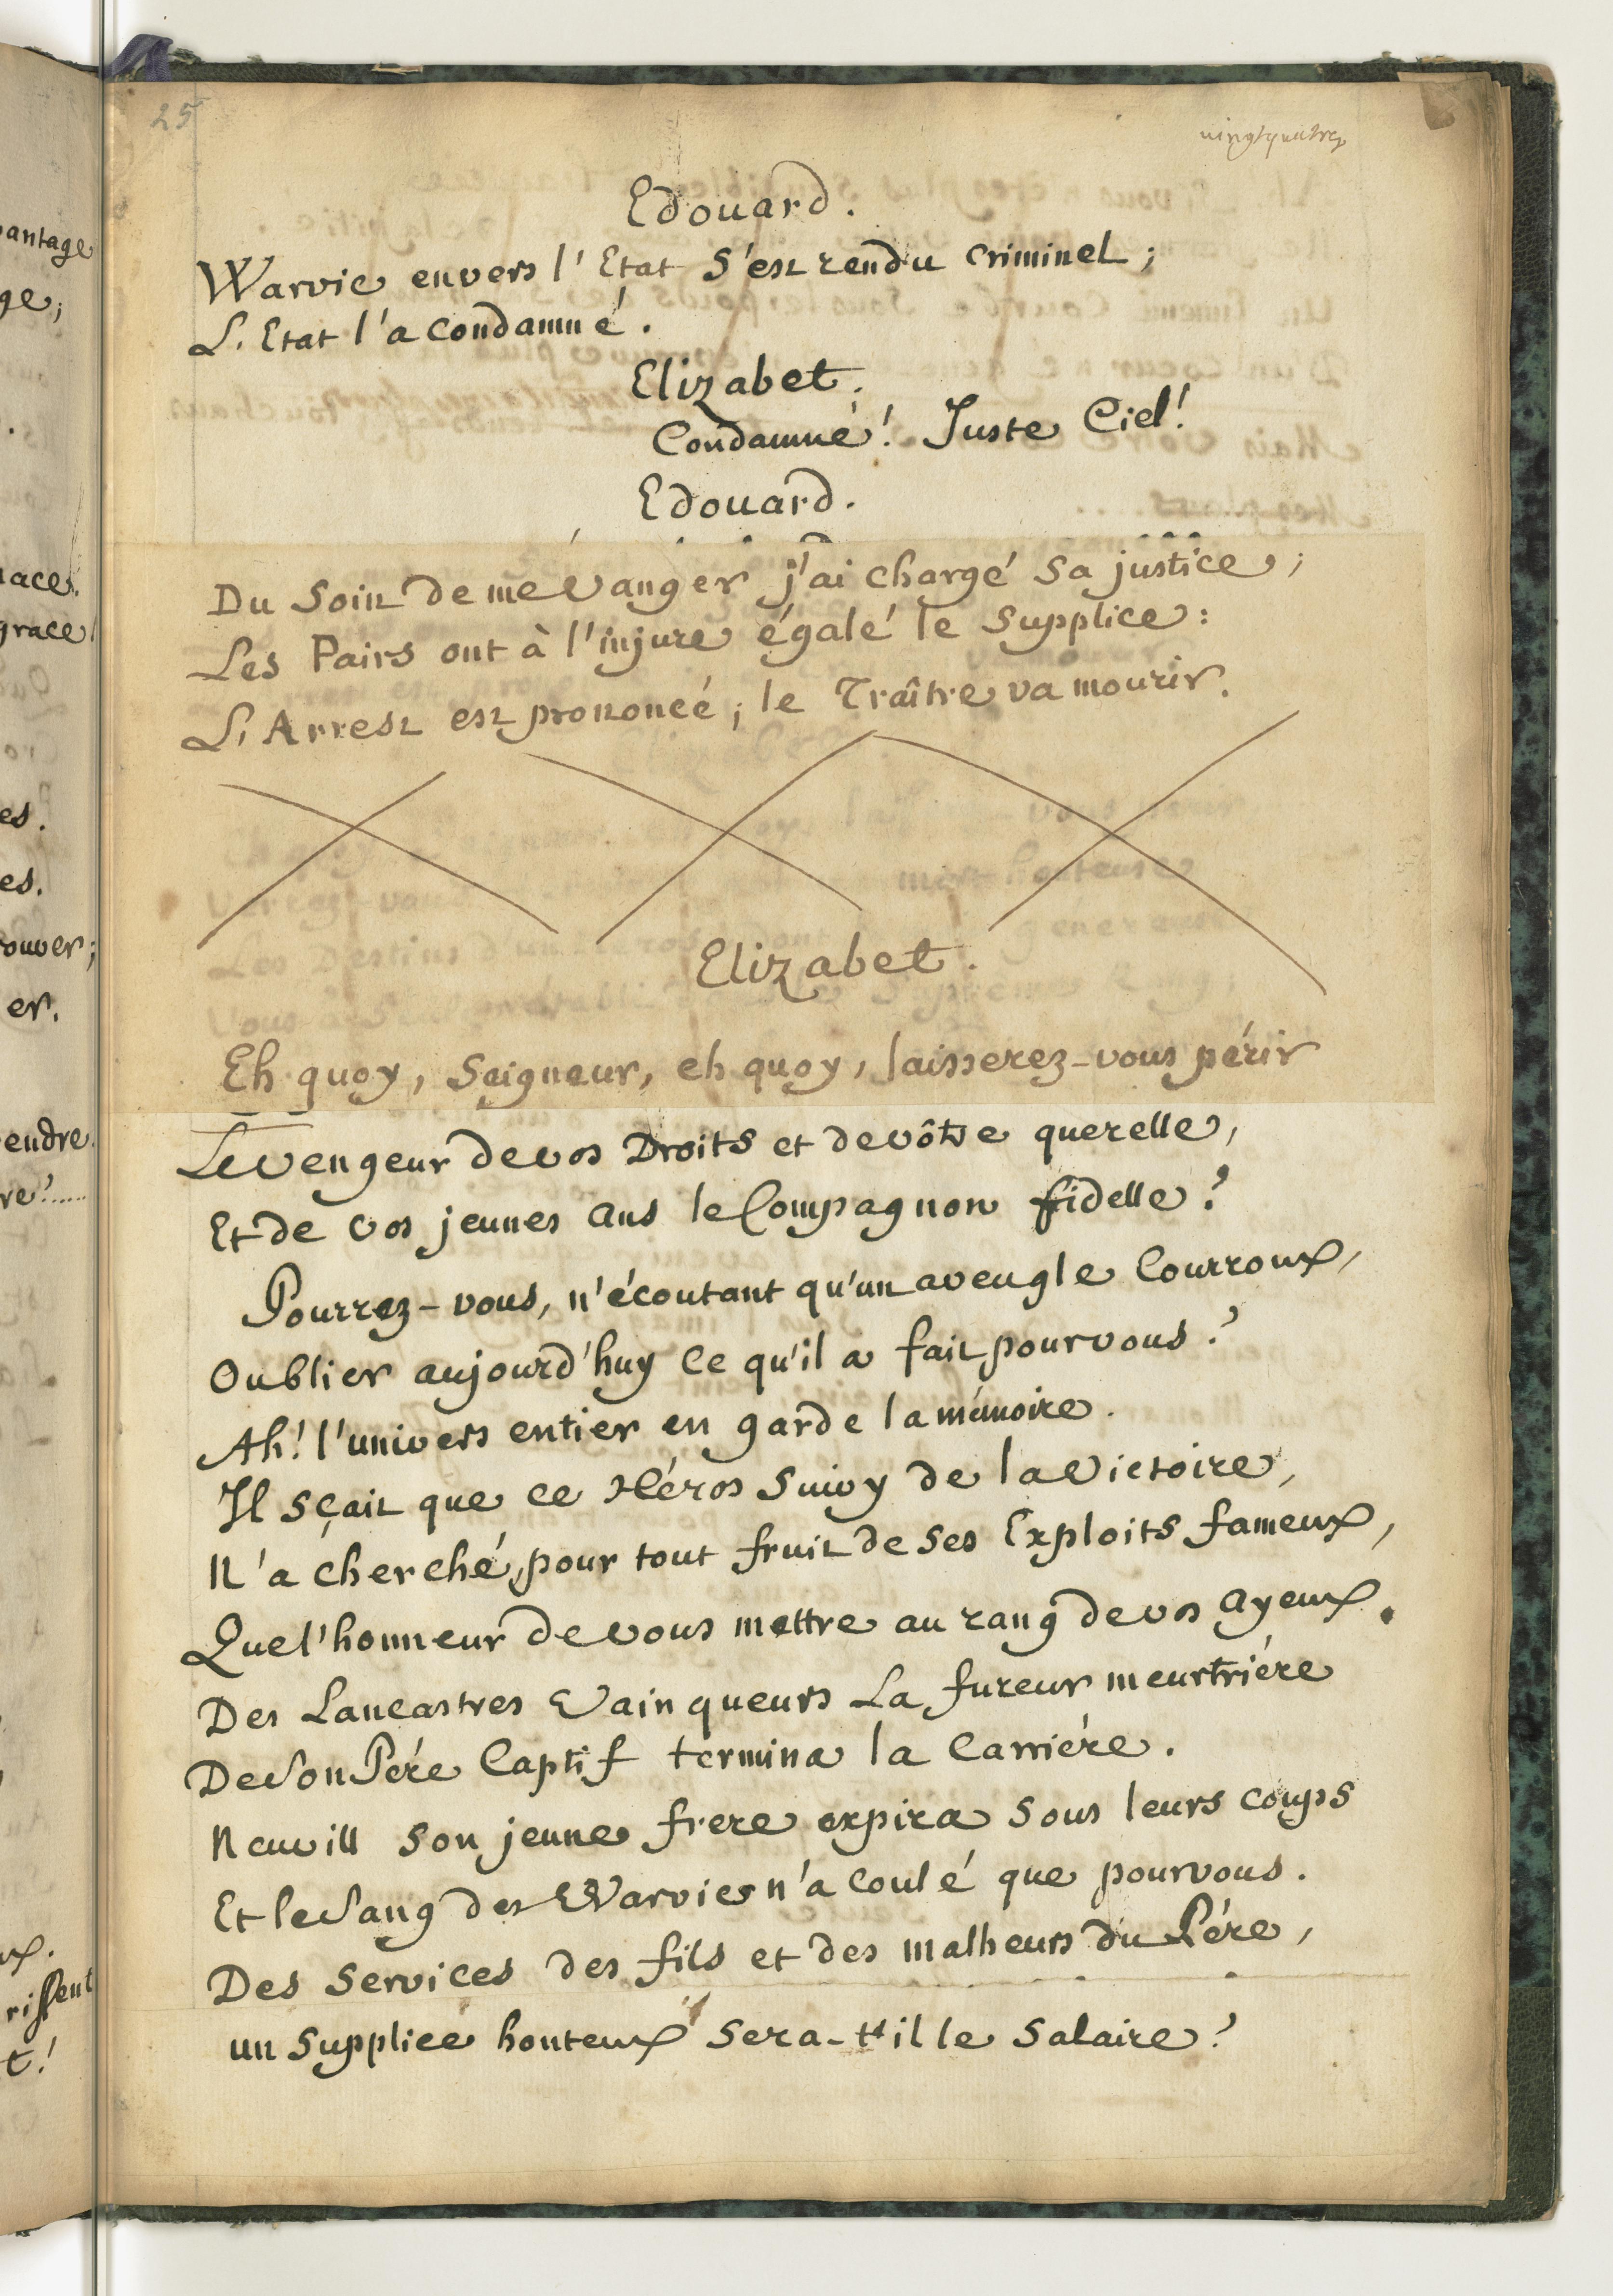 25
vingtquatre
Edouard.
Warvic envers l'Etat s'est rendu criminel ;
L'Etat l'a condamné.
Elizabet.
Condamné ! Juste Ciel !
Edouard.
Du soin de me vanger j'ai chargé sa justice ;
Les Pairs ont à l'injure égalé le supplice :
L'Arrest est prononcé ; le Traître va mourir.
Elizabet.
Eh quoy, Seigneur, eh quoy, laisserez-vous périr
Le vengeur de vos Droits et de vôtre querelle,
Et de vos jeunes ans le Compagnon fidelle ?
Pourrez-vous, n'écoutant qu'un aveugle Courroux,
Oublier aujourd'huy ce qu'il a fait pour vous ?
Ah ! l'univers entier en garde la mémoire.
Il sçait que ce Héros suivy de la victoire,
N'a cherché, pour tout fruit de ses Exploits fameux,
Que l'honneur de vous mettre au rang de vos ayeux.
Des Lancastres vainqueurs la fureur meurtriére
De son Pére Captif termina la Carriére.
Neuvill son jeune frere expira sous leurs coups
Et le sang des Warvics n'a coulé que pour vous.
Des services des fils et des malheurs du Pére,
un supplice honteux sera-t'il le salaire ?
antage
ge ;
ace.
grace
es.
es.
ouver ;
er.
endre.
re ?.....
ux.
rissent
t !